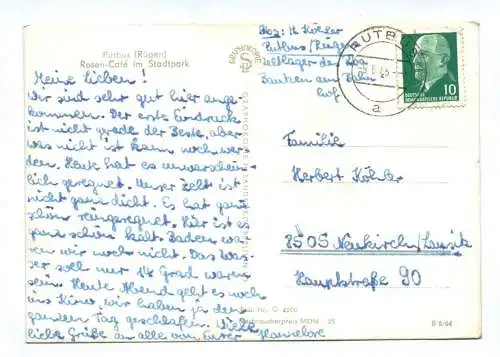 Putbus (Rügen)
Rosen-Café im Stadtpark
Meine Lieben!
Wir sind sehr gut hier ange-
kommen. Der erste Eindruck
ist nicht grade der Beste, aber
was nicht ist kann noch wer-
den. Heute hat es unwarschein-
lich geregnet. Unser Zelt ist
nicht ganz dicht. Es hat ganz
schön reingeregnet. Hier ist es
ganz schön kalt. Baden wa-
ren wir noch nicht. Das Was-
ser soll nur 14 Grad waren
sein. Heute Abend geht es noch
ins Kino, wir haben ja den
ganzen Tag geschlafen. Viele
liebe Grüße an alle von Eurer Hannelore
Abs: H. Köhler
Putbus/Rügen
Zeltlager
Baracken am Bahn
hof
PUTBUS
a
10
DEUTSCHE
DEMOKRATISCHE REPUBLIK
Familie
Herbert Köhler
8505 Neukirch/Lausitz
Hauptstraße 90
Verbraucherpreis MDN
B 8/64